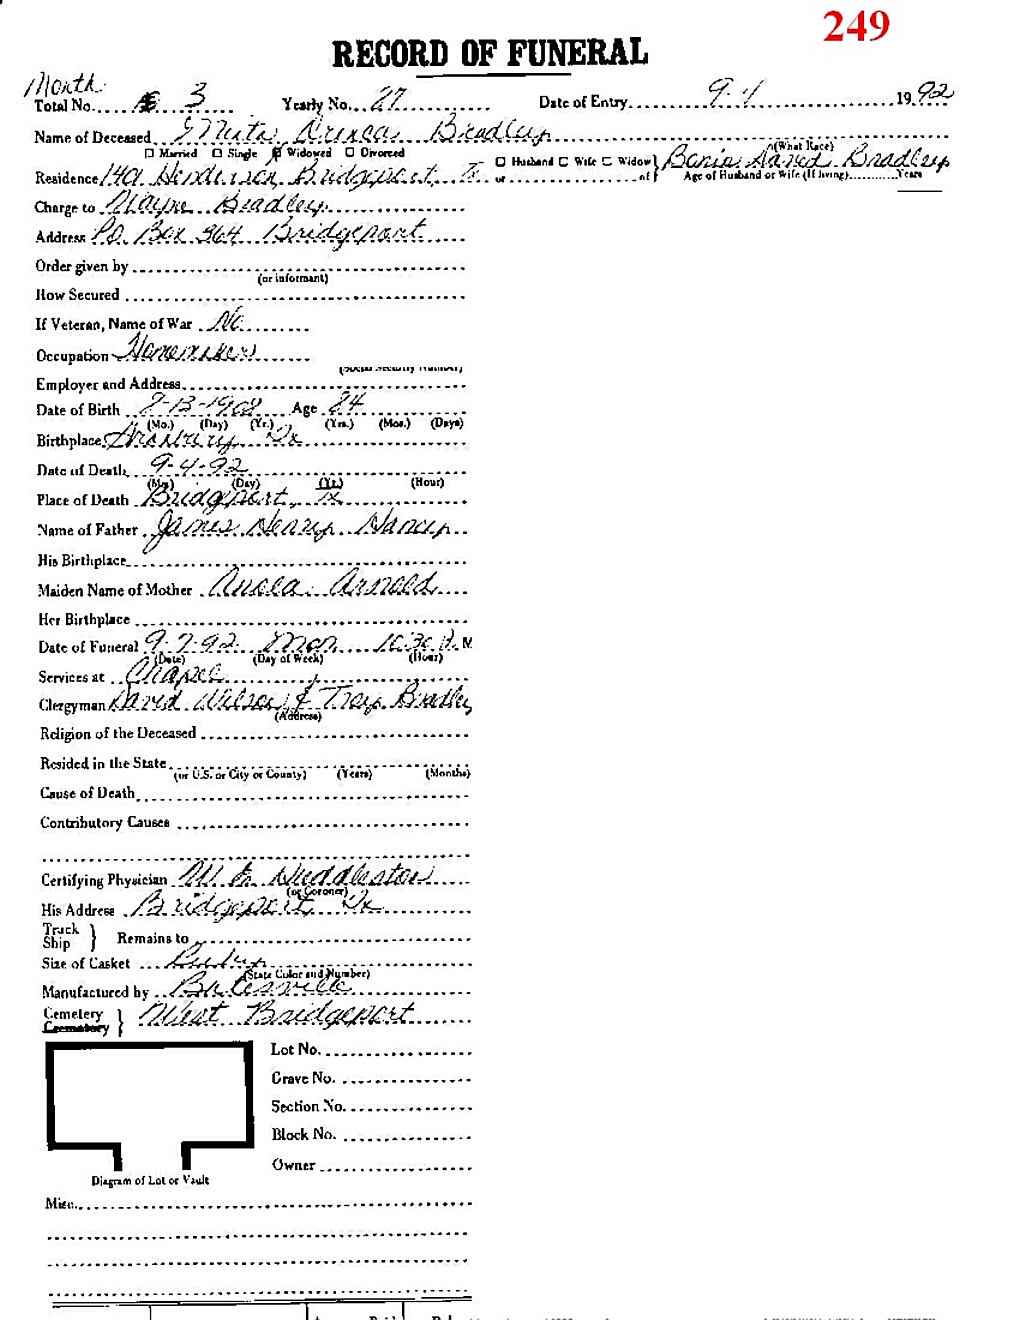 249
RECORD OF FUNERAL
Month
Total No. 3 Yearly No. 27 Date of Entry 9-4 1992
Name of Deceased Bradley
(What Race)
☐ Married ☐ Single ☑ Widowed ☐ Divorced ☐ Husband ☐ Wife ☐ Widow } David Bradley
Residence 1401 Henderson, Bridgeport, Tx or of Age of Husband or Wife (If living) Years
Charge to Wayne Bradley
Address P.O. Box 364 Bridgeport
Order given by
(or informant)
How Secured
If Veteran, Name of War No
Occupation Homemaker
(Social Security Number)
Employer and Address
Date of Birth 7-13-1908 Age 84
(Mo.) (Day) (Yr.) (Yrs.) (Mos.) (Days)
Birthplace Tx
Date of Death 9-4-92
(Mo.) (Day) (Yr.) (Hour)
Place of Death Bridgeport, Tx
Name of Father James Henry
His Birthplace
Maiden Name of Mother Arnold
Her Birthplace
Date of Funeral 9-7-92 Mon 10:30 A.M
(Date) (Day of Week) (Hour)
Services at Chapel
Clergyman David Wilson & Troy Bradley
(Address)
Religion of the Deceased
Resided in the State
(or U.S. or City or County) (Years) (Months)
Cause of Death
Contributory Causes
Certifying Physician Huddleston
(or Coroner)
His Address Bridgeport Tx
Truck
Ship } Remains to
Size of Casket
(State Color and Number)
Manufactured by Batesville
Cemetery
Crematory } West Bridgeport
Lot No.
Grave No.
Section No.
Block No.
Owner
Diagram of Lot or Vault
Misc.